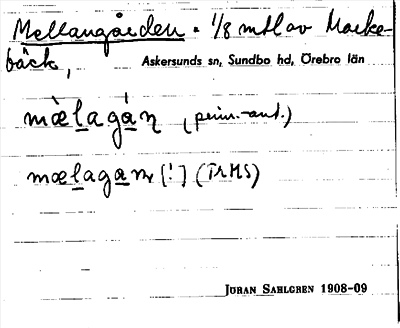 Mellangården. 1/8 mtl av Marke-
bäck, Askersunds sn, Sundbo hd, Örebro län
mælagàn (prim.-ant.)
mælagam [!] (TrMS)
JÖRAN SAHLGREN 1908-09